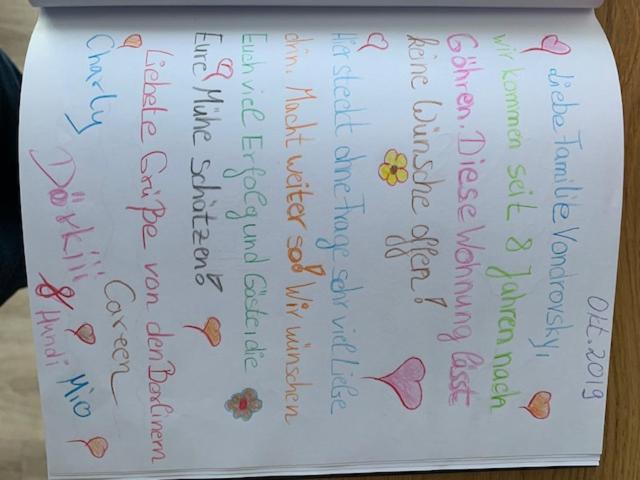 Okt. 2019
Liebe Familie Vondrovsky,
wir kommen seit 8 Jahren nach
Göhren. Diese Wohnung lässt
keine Wünsche offen!
Hier steckt ohne Frage sehr viel Liebe
drin. Macht weiter so! Wir wünschen
Euch viel Erfolg und Gäste, die
Eure Mühe schätzen!
Liebste Grüße von den Berlinern
Charly Careen Mio
Dörkiii & Hundi